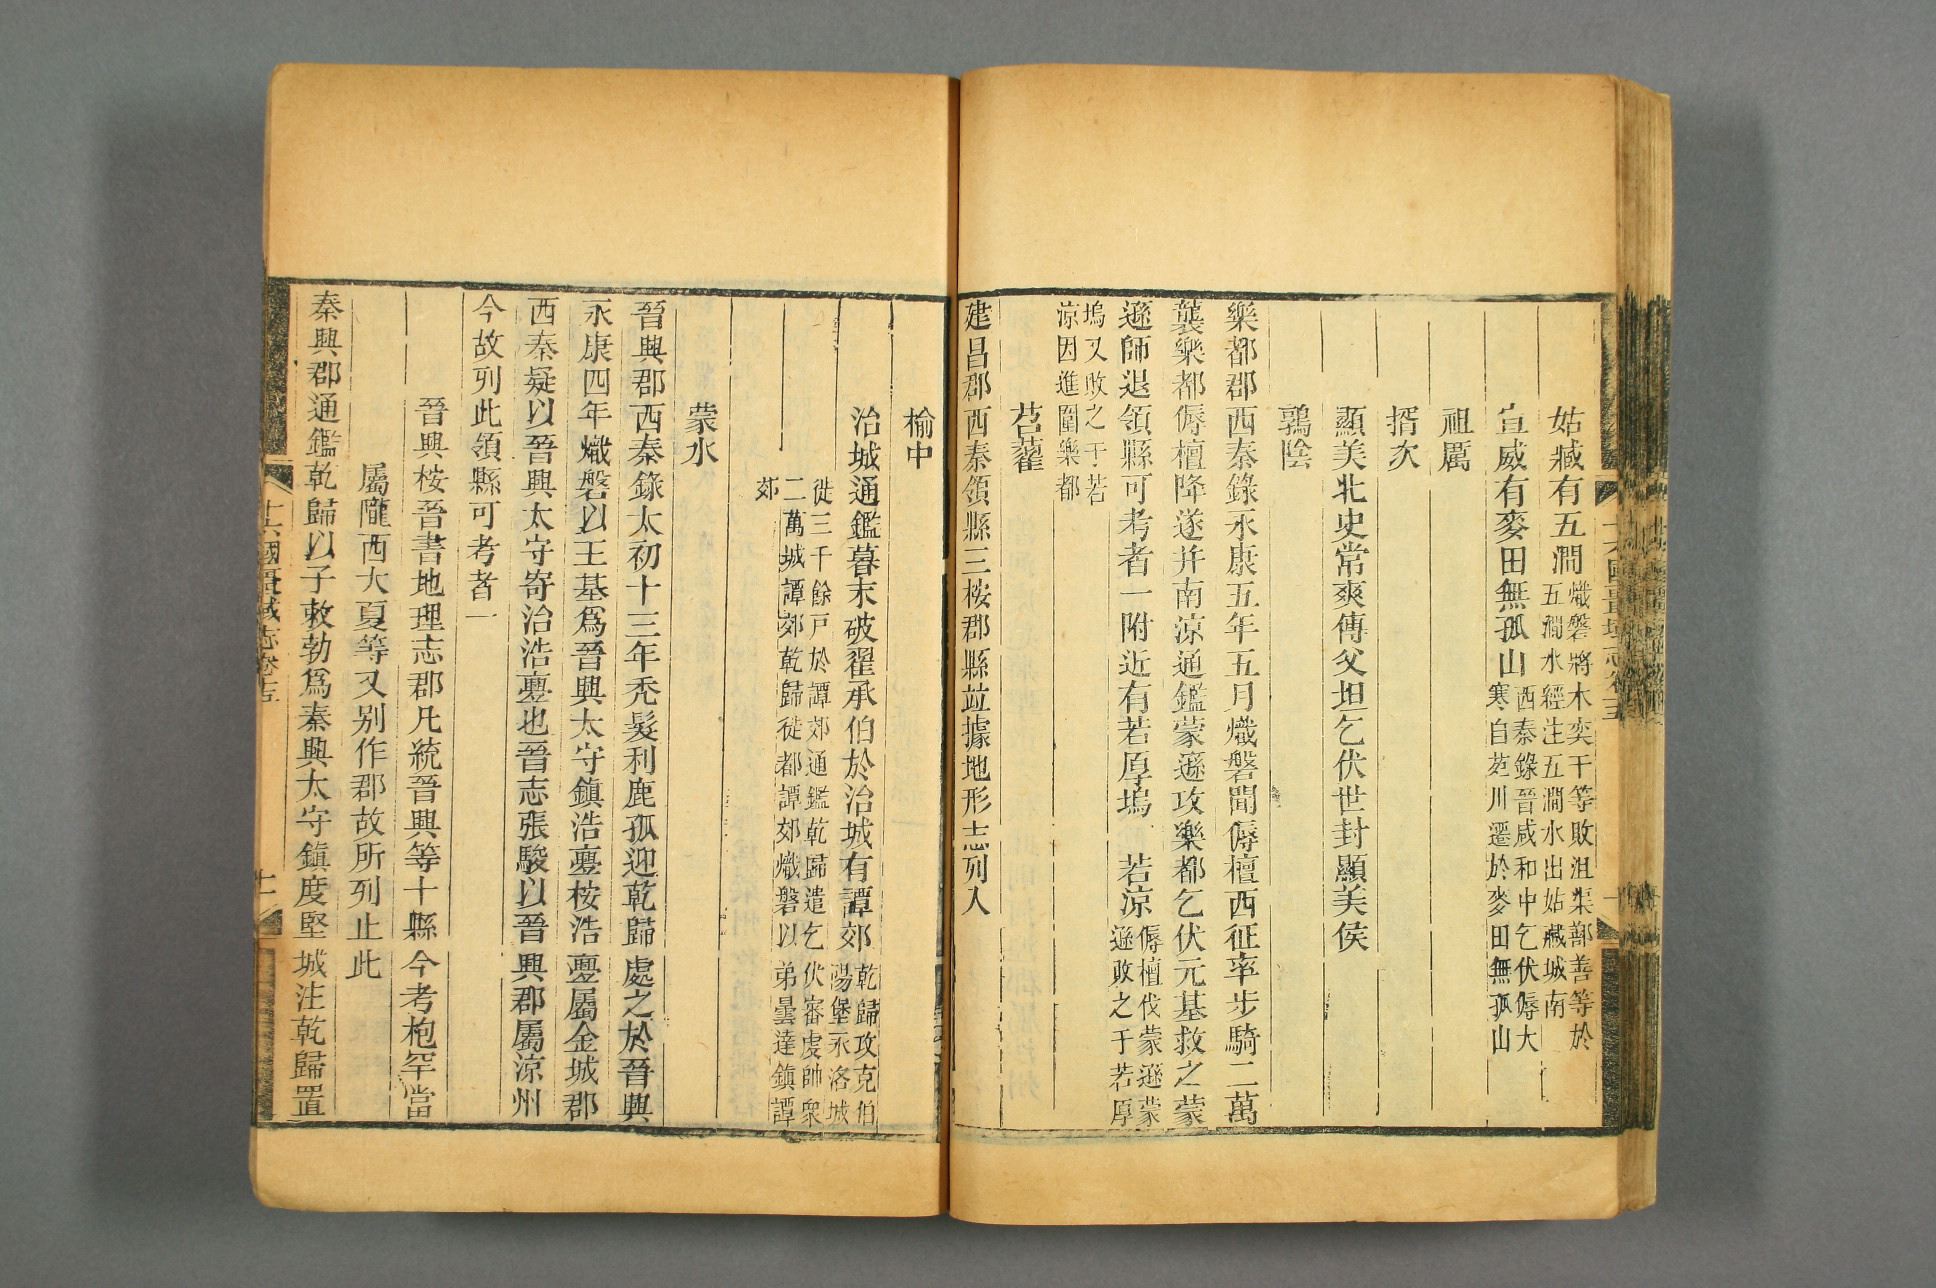 姑臧有五澗熾磐將木奕干等敗沮渠鄯善等於五澗水經注五澗水出姑臧城南
宣威有麥田無孤山西秦錄晉咸和中乞伏傉大寒自苑川遷於麥田無孤山
祖厲
揟次
顯美北史常爽傳父坦乞伏世封顯美侯
鶉陰
樂都郡西秦錄永康五年五月熾磐聞傉檀西征率步騎二萬
襲樂都傉檀降遂并南涼通鑑蒙遜攻樂都乞伏元基救之蒙
遜師退領縣可考者一附近有若厚塢 若涼傉檀伐蒙遜蒙遜敗之于若厚
塢又敗之于若涼因進圍樂都
苕藋
建昌郡西秦領縣三桉郡縣竝據地形志列入
榆中
治城通鑑暮末破翟承伯於治城有譚郊乾歸攻克伯陽堡永洛城
徙三千餘戶於譚郊通鑑乾歸遣乞伏審虔帥衆二萬城譚郊乾歸徙都譚郊熾磐以弟曇達鎮譚
郊
蒙水
晉興郡西秦錄太初十三年禿髮利鹿孤迎乾歸處之於晉興
永康四年熾磐以王基爲晉興太守鎮浩亹桉浩亹屬金城郡
西秦疑以晉興太守寄治浩亹也晉志張駿以晉興郡屬涼州
今故列此領縣可考者一
晉興桉晉書地理志郡凡統晉興等十縣今考枹罕當
屬隴西大夏等又別作郡故所列止此
秦興郡通鑑乾歸以子敕勃爲秦興太守鎮度堅城注乾歸置
十六國疆域志卷十五
十一